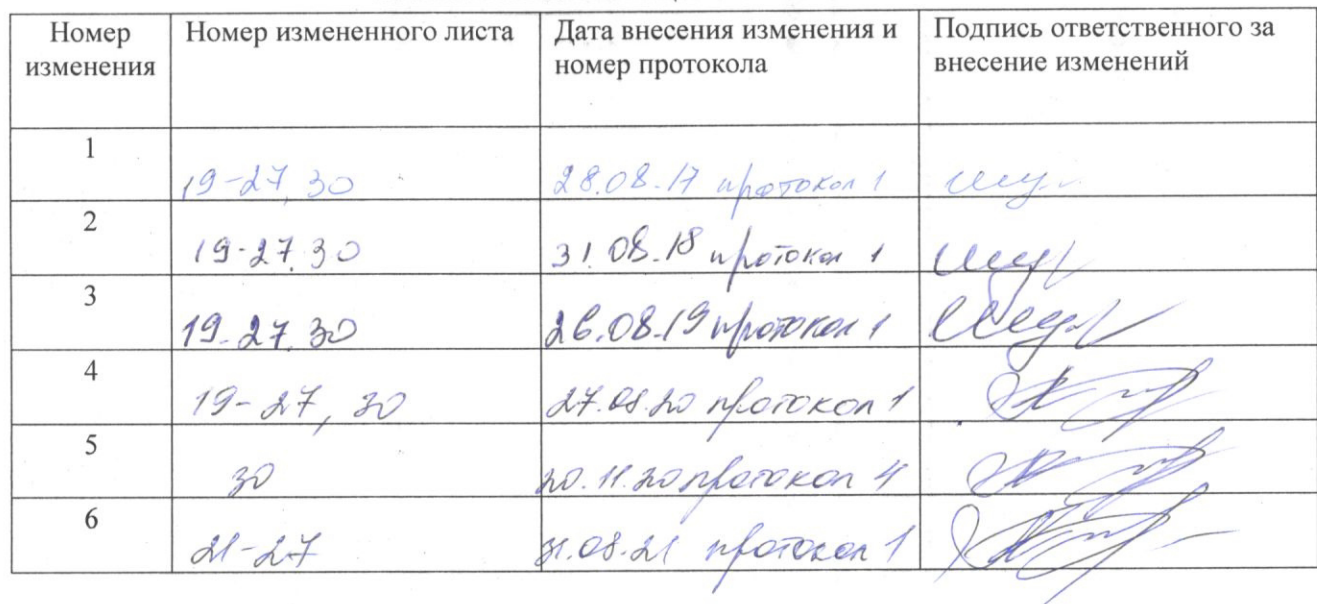 Номер изменения
Номер измененного листа
Дата внесения изменения и номер протокола
Подпись ответственного за внесение изменений
1
19-27, 30
28.08.17 протокол 1
2
19-27, 30
31.08.18 протокол 1
3
19-27, 30
26.08.19 протокол 1
4
19-27, 30
27.08.20 протокол 1
5
30
20.11.20 протокол 4
6
21-27
31.08.21 протокол 1